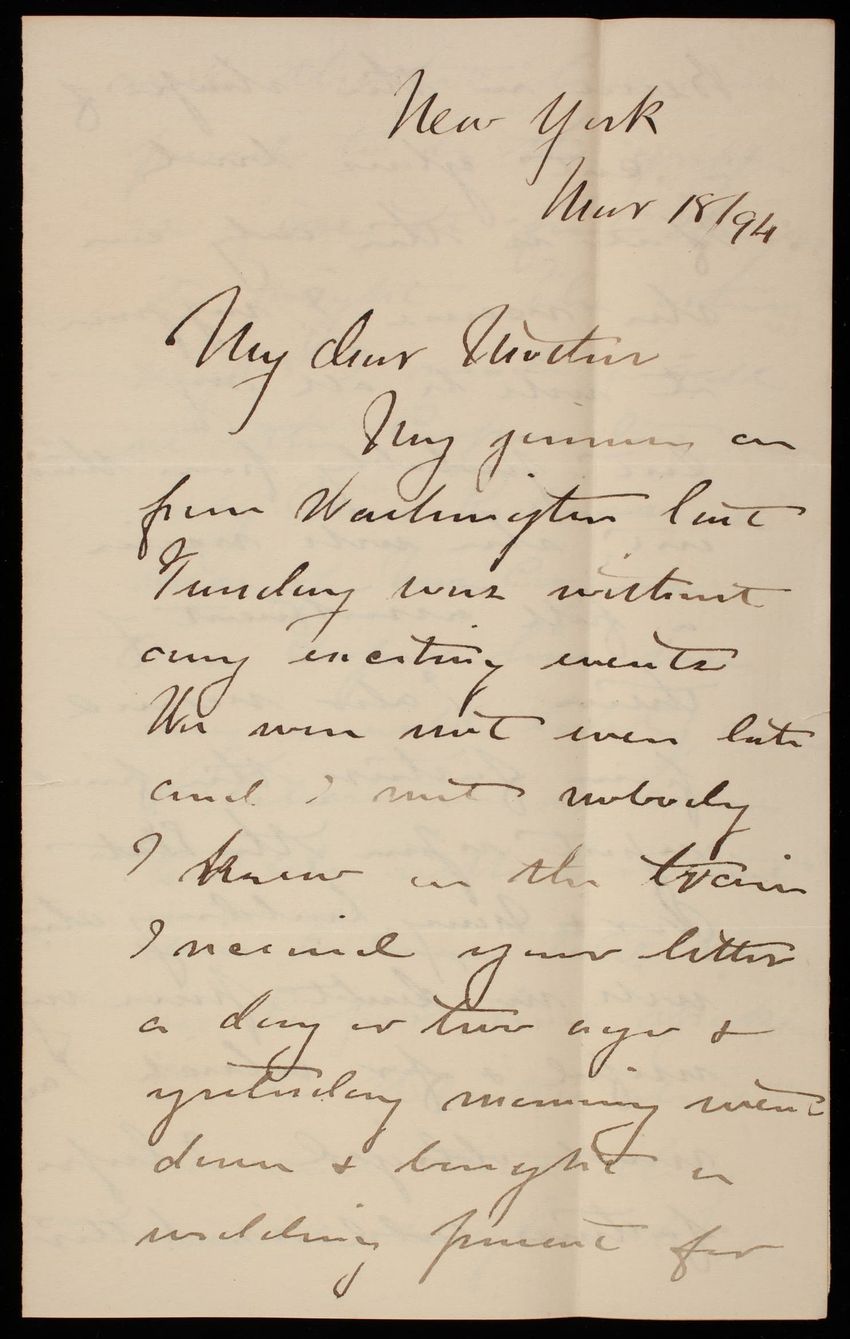 New York
Mar 18/94
My dear Mother
My journey on
from Washington last
Tuesday was without
any exciting events
We were not even late
and I met nobody
I knew on the train
I received your letter
a day or two ago &
yesterday morning went
down & bought a
wedding present for